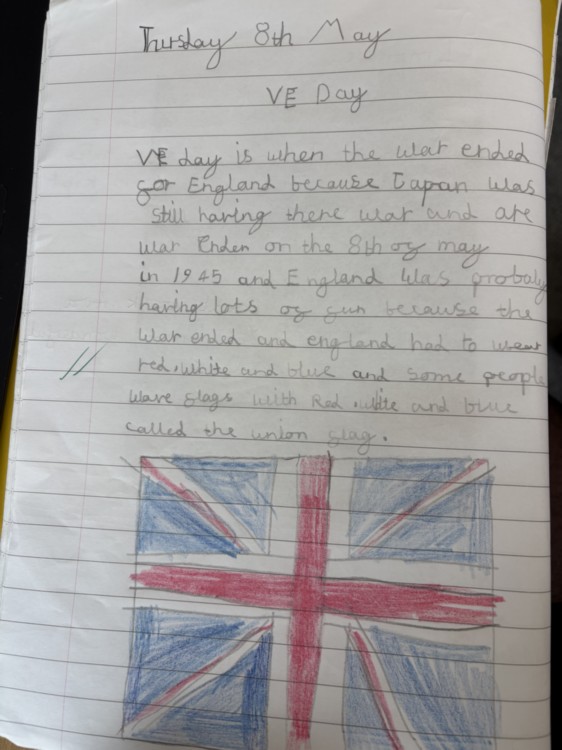 Thursday 8th May
VE Day
VE day is when the war ended
for England because Japan was
still having there war and are
war Ender on the 8th of may
in 1945 and England was probaly
having lots of fun because the
war ended and england had to wear
red, white and blue and some people
wave flags with Red, white and blue
called the union flag.